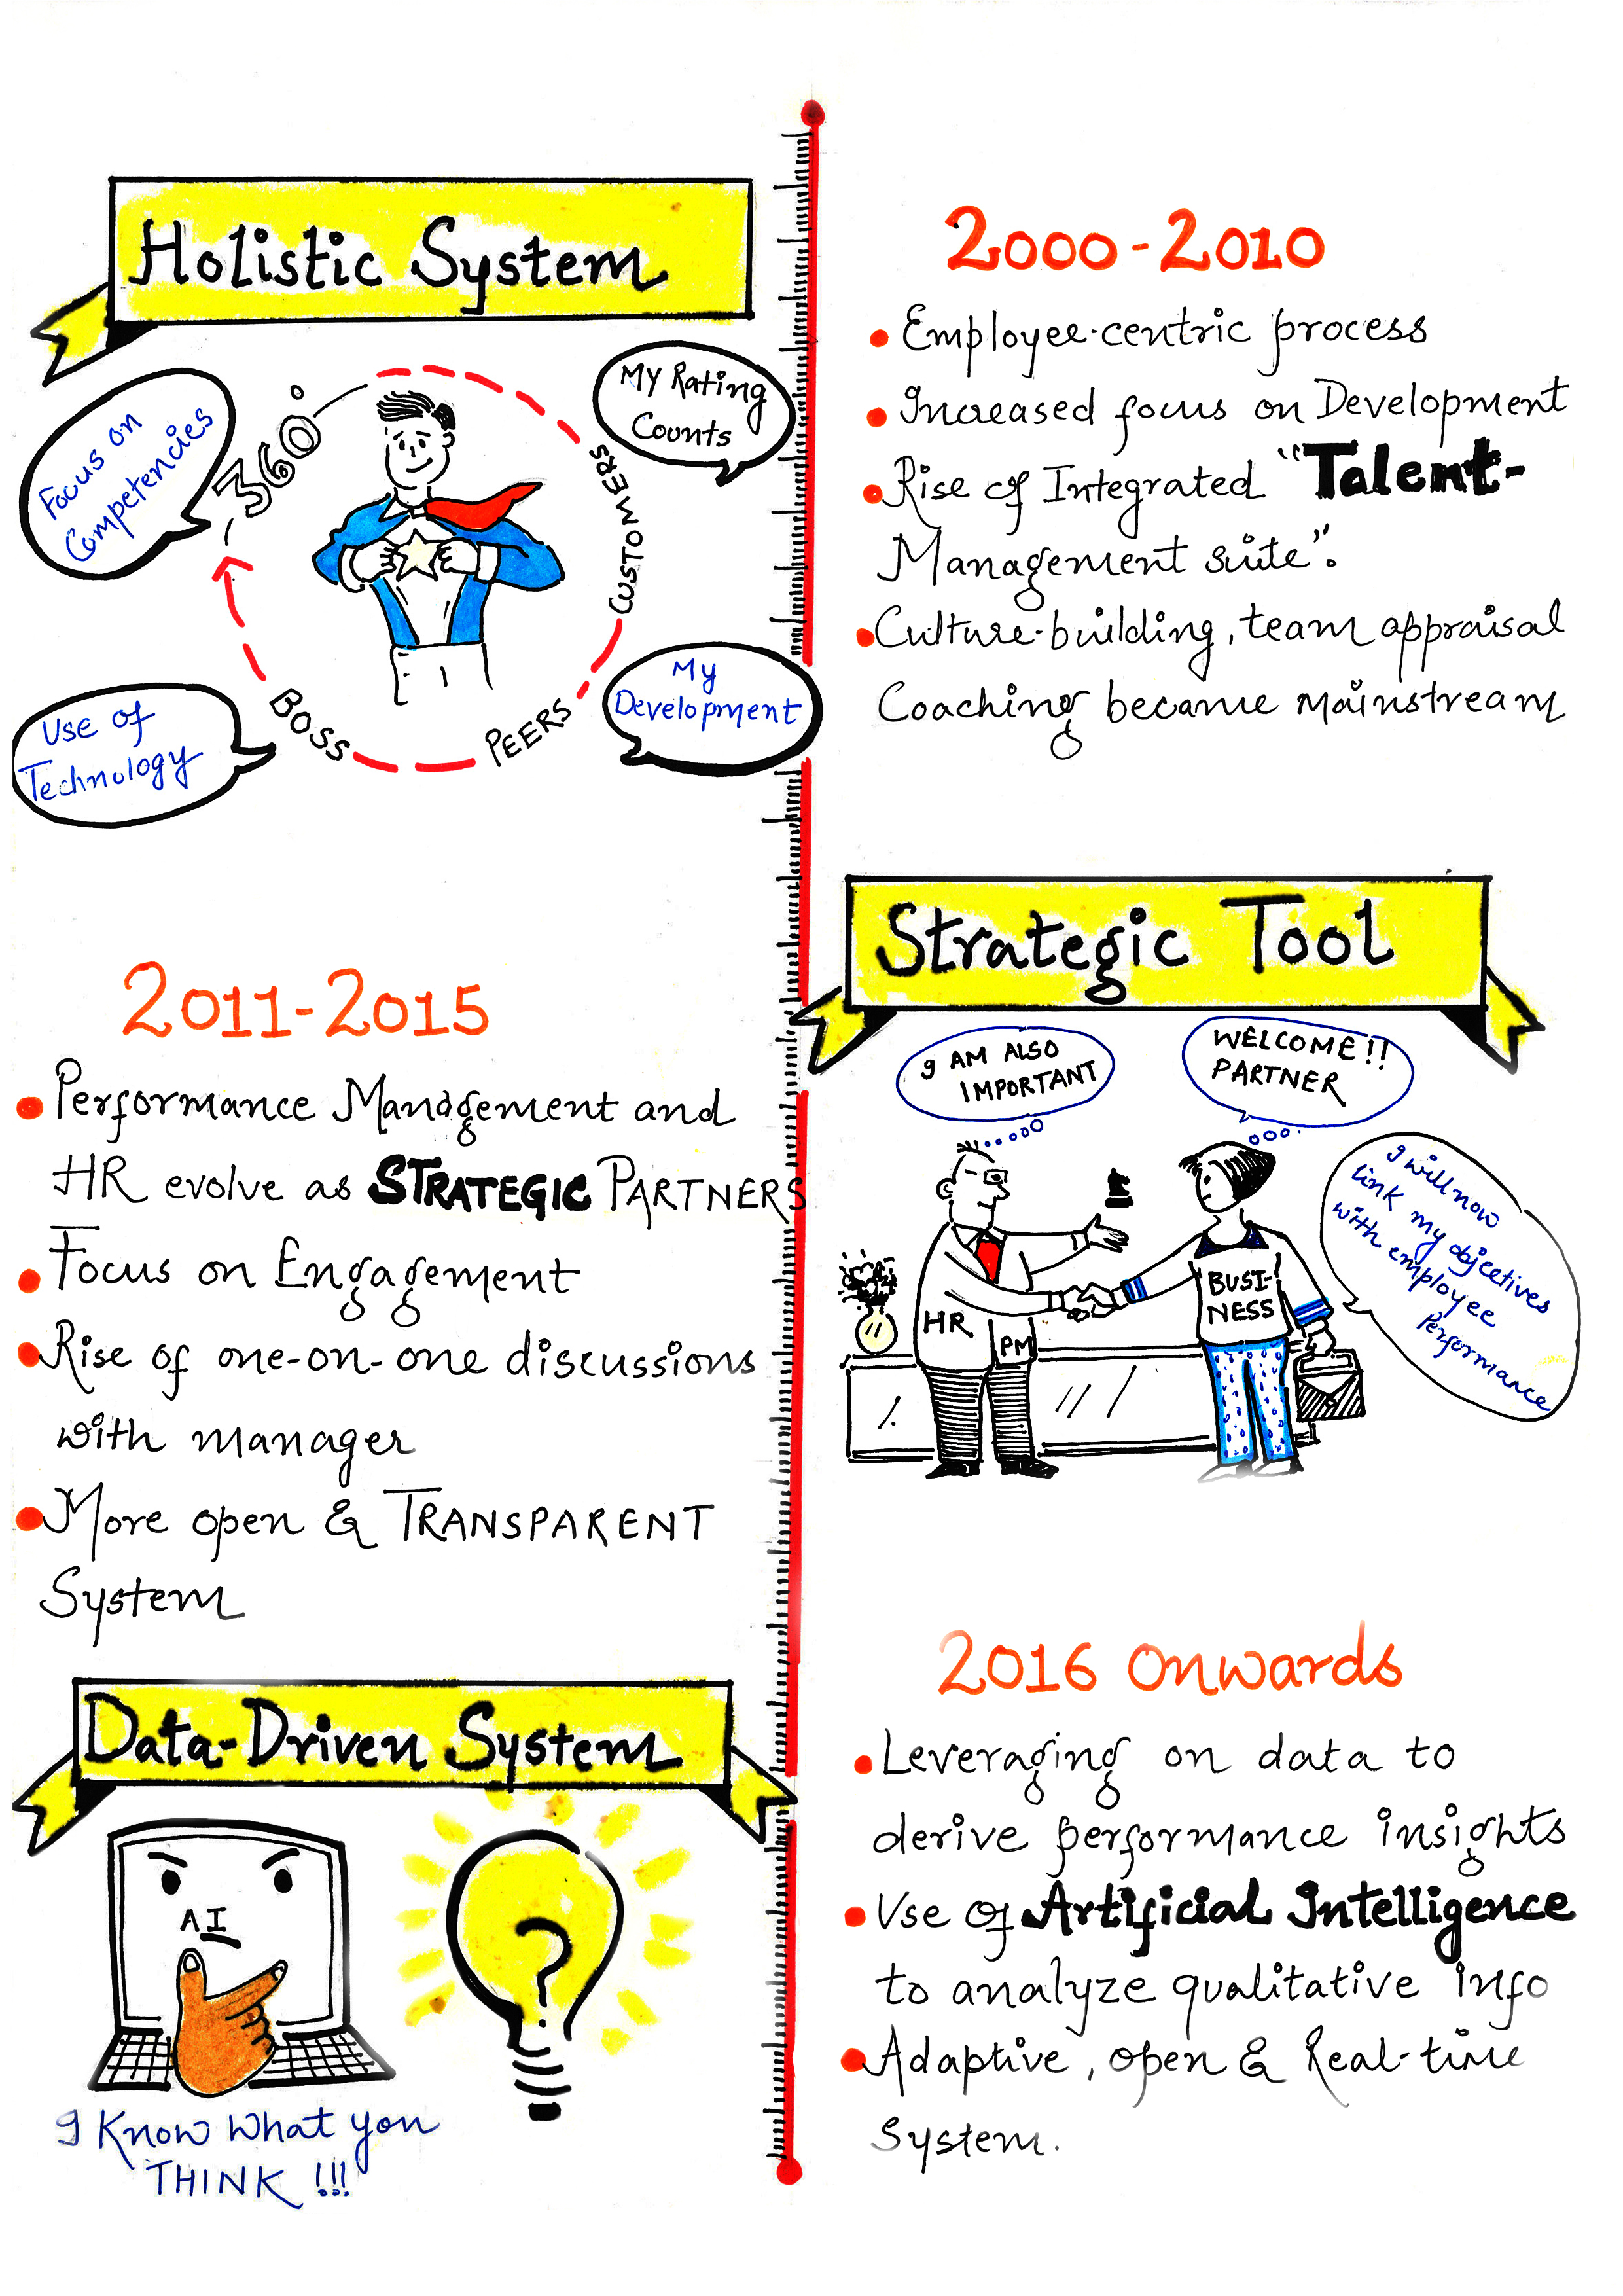 Holistic System
Focus on
Competencies
360°
My Rating
Counts
CUSTOMERS
My
Development
PEERS
BOSS
Use of
Technology
2000-2010
Employee-centric process
Increased focus on Development
Rise of Integrated "Talent-
Management suite".
Culture-building, team appraisal
Coaching became mainstream
2011-2015
Performance Management and
HR evolve as STRATEGIC PARTNERS
Focus on Engagement
Rise of one-on-one discussions
with manager
More open & TRANSPARENT
System
Strategic Tool
I AM ALSO
IMPORTANT
WELCOME!!
PARTNER
I will now
link my objectives
with employee
Performance
HR
PM
BUSI-
NESS
Data-Driven System
AI
?
I Know What you
THINK !!!
2016 Onwards
Leveraging on data to
derive performance insights
Use of Artificial Intelligence
to analyze qualitative info
Adaptive, open & Real-time
System.